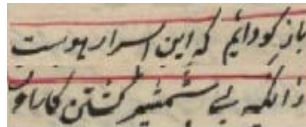 باز کو دائم که این اسرار هوست
زانکه بے شمشیر کشتن کار اوست